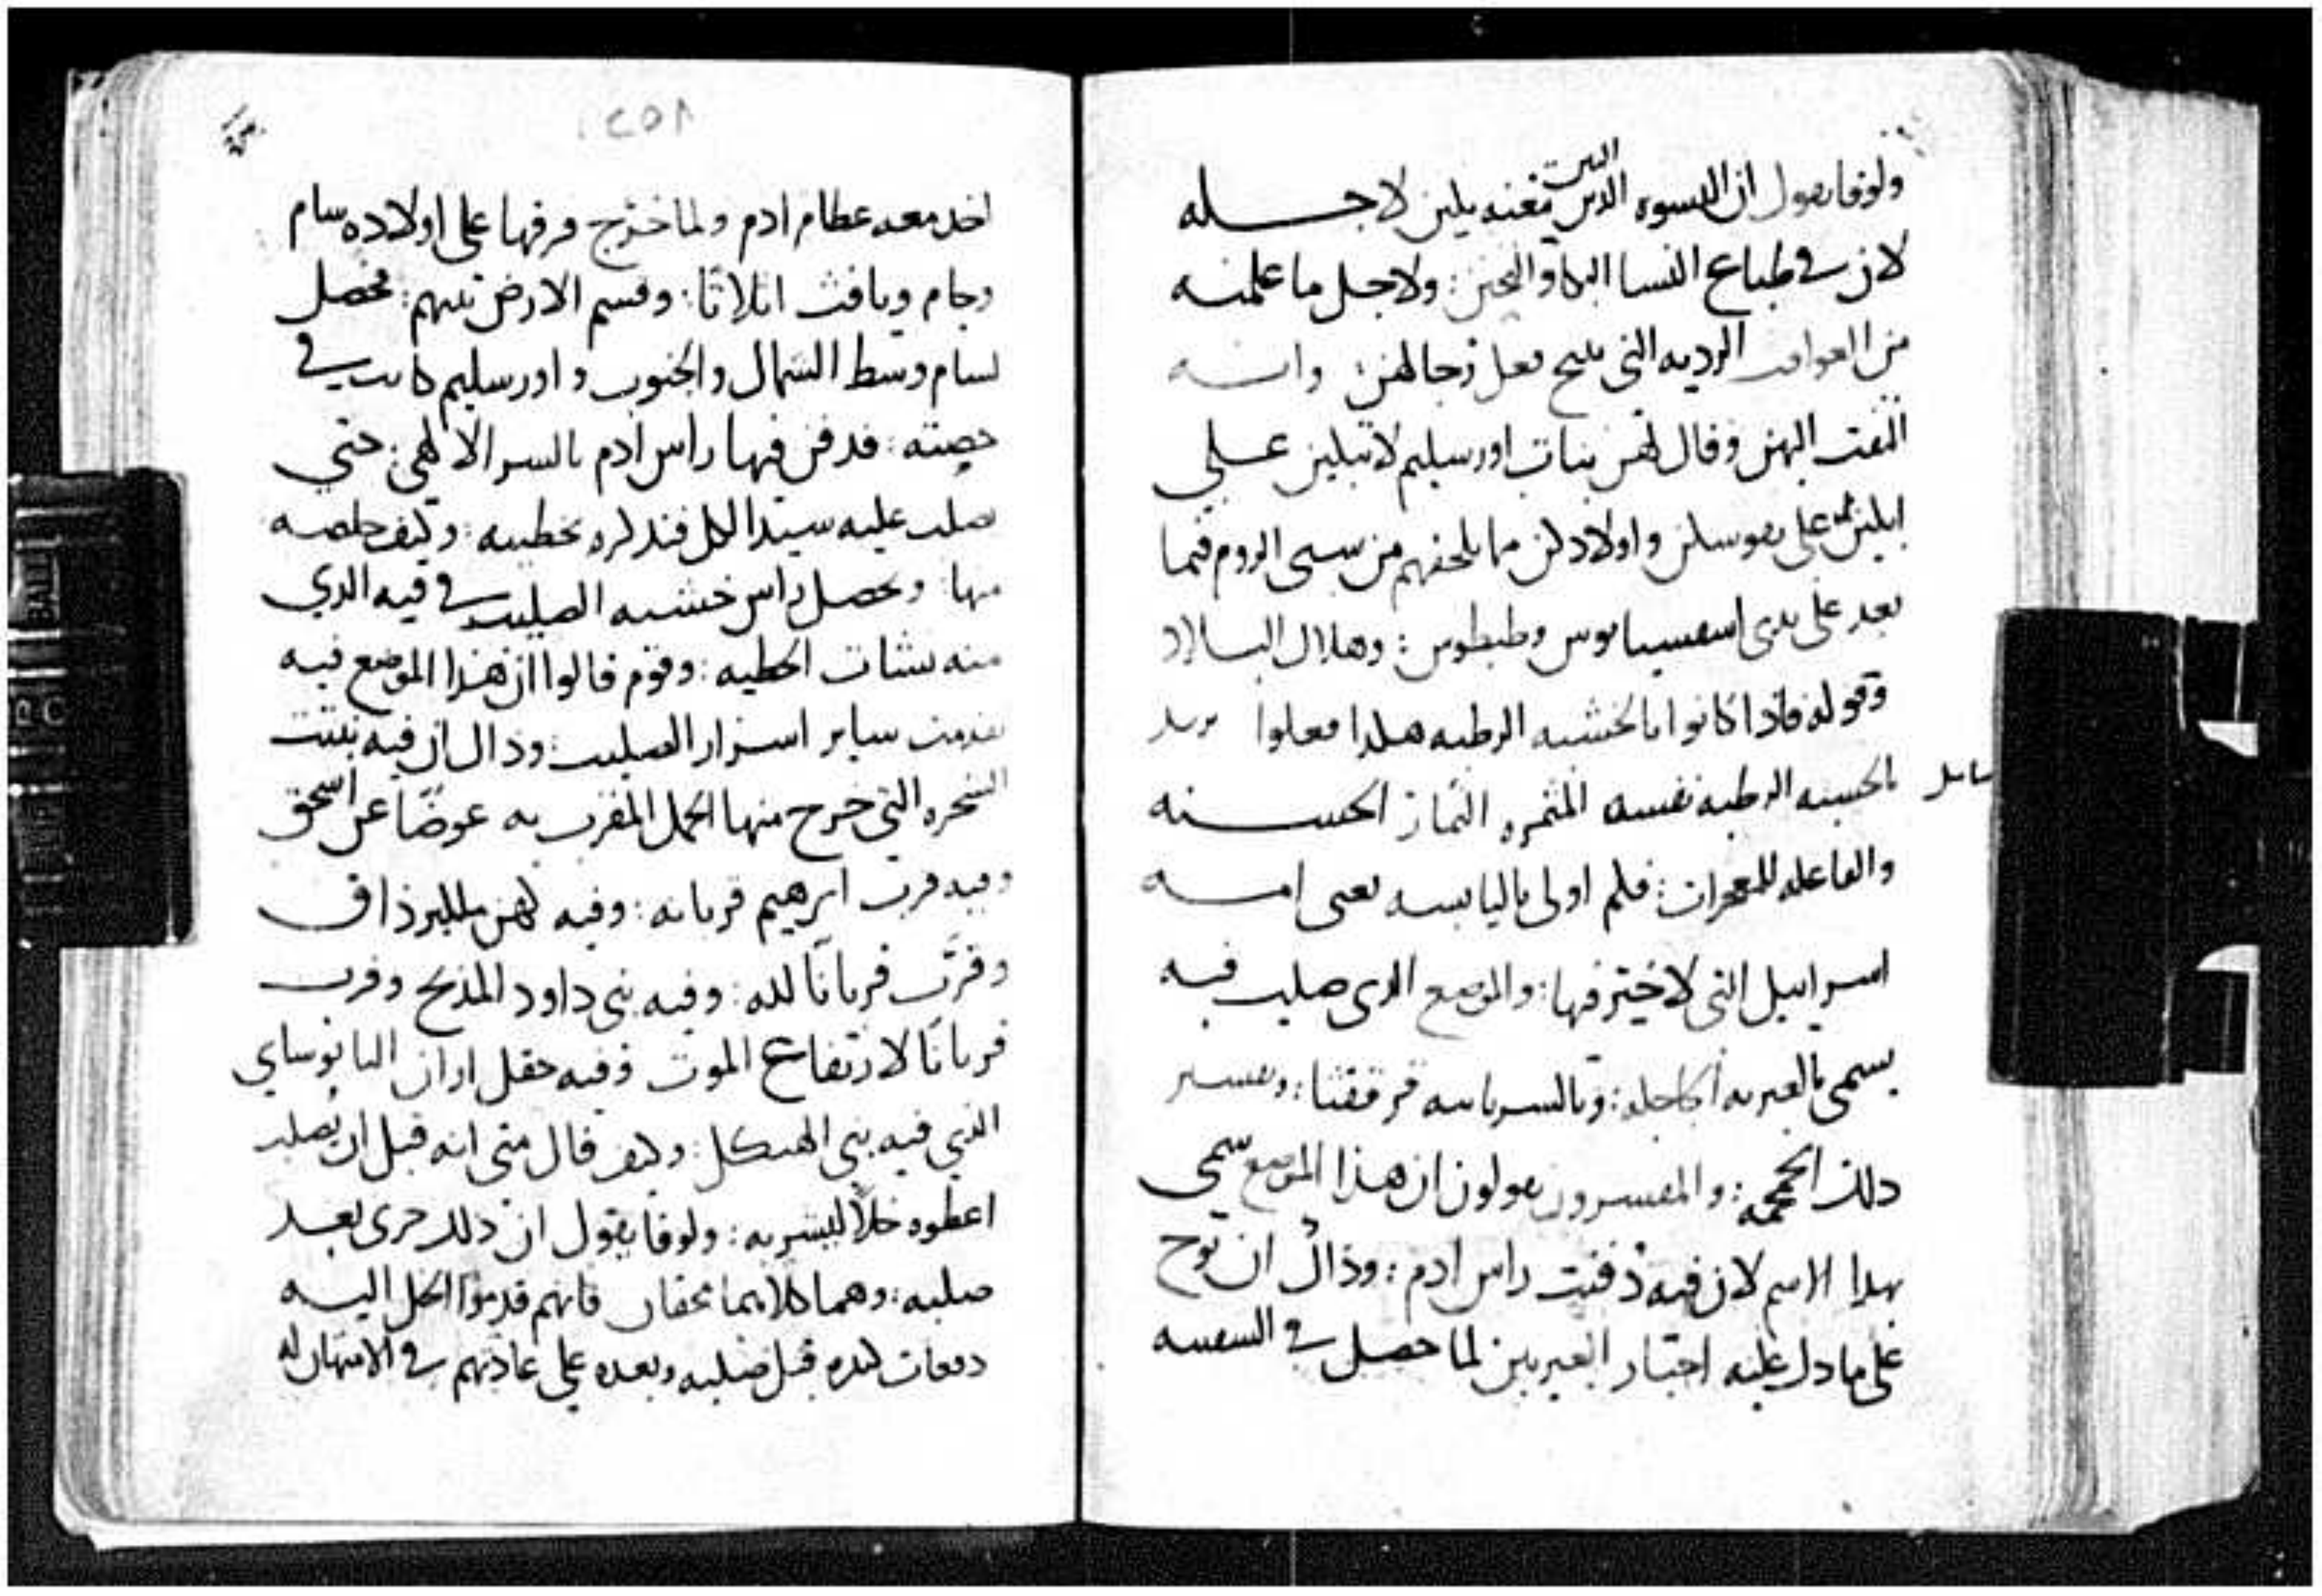 ولوقا يقول ان النسوه الذين اتين معه يبكين لاجله
لان في طباع النسا البكا والتحنن : ولاجل ما علمنه
من العواقب الرديه التي تنتج فعل رجالهن : وانه
التفت اليهن وقال لهن بنات اورسليم لا تبكين علي
ابكين على نفوسكن واولادكن مما يلحقهم من سبي الروم فيما
بعد على يدي اسفسيانوس وطيطوس : وهلاك البلاد
وقوله فاذا كانوا بالخشبه الرطبه هكدا فعلوا يريد
بالخشبه الرطبه نفسه المثمره الثمار الحسنه
والفاعله للمعجزات : فكم اولى باليابسه يعني امه
اسراييل التي لا خير فيها : والموضع الدي صلب فيه
يسمى بالعبريه اكاجله : وبالسريانيه قرقفثا : وتفسير
دلك الجمجمه : والمفسرون يقولون ان هذا الموضع سمي
بهدا الاسم لان فيه دفنت راس ادم : وذاك ان نوح
على ما دل عليه اخبار العبريين لما حصل في السفينه
258
اخد معه عظام ادم ولما خرج فرقها على اولاده سام
وحام ويافث اثلاثا : وقسم الارض بينهم : فحصل
لسام وسط الشمال والجنوب واورسليم كانت في
حصته : فدفن فيها راس ادم بالسر الالاهي : حتي
صلب عليه سيد الكل فتدكره بخطيته : وكيف خلصه
منها : وبحصل راس خشبه الصليب في فيه الدي
منه نشات الخطيه : وقوم قالوا ان هذا الموضع فيه
تقدمت ساير اسرار الصليب : وذاك ان فيه نبتت
الشجره التي خرج منها الحمل المقرب به عوضًا عن اسحق
وفيه قرب ابرهيم قربانه : وفيه كهن ملكيزذاق
وقرّب قربانًا لله : وفيه بنى داود المذبح وقرب
قربانًا لارتفاع الموت وفيه حقل اران اليابوساي
الذي فيه بني الهيكل : وكيف قال متى انه قبل ان يصلب
اعطوه خلاً ليشربه : ولوقا يقول ان دلك جرى بعد
صلبه : وهما كلاهما محقان فانهم قدموا الخل اليه
دفعات كثره قبل صلبه وبعده على عادتهم في الامتهان له